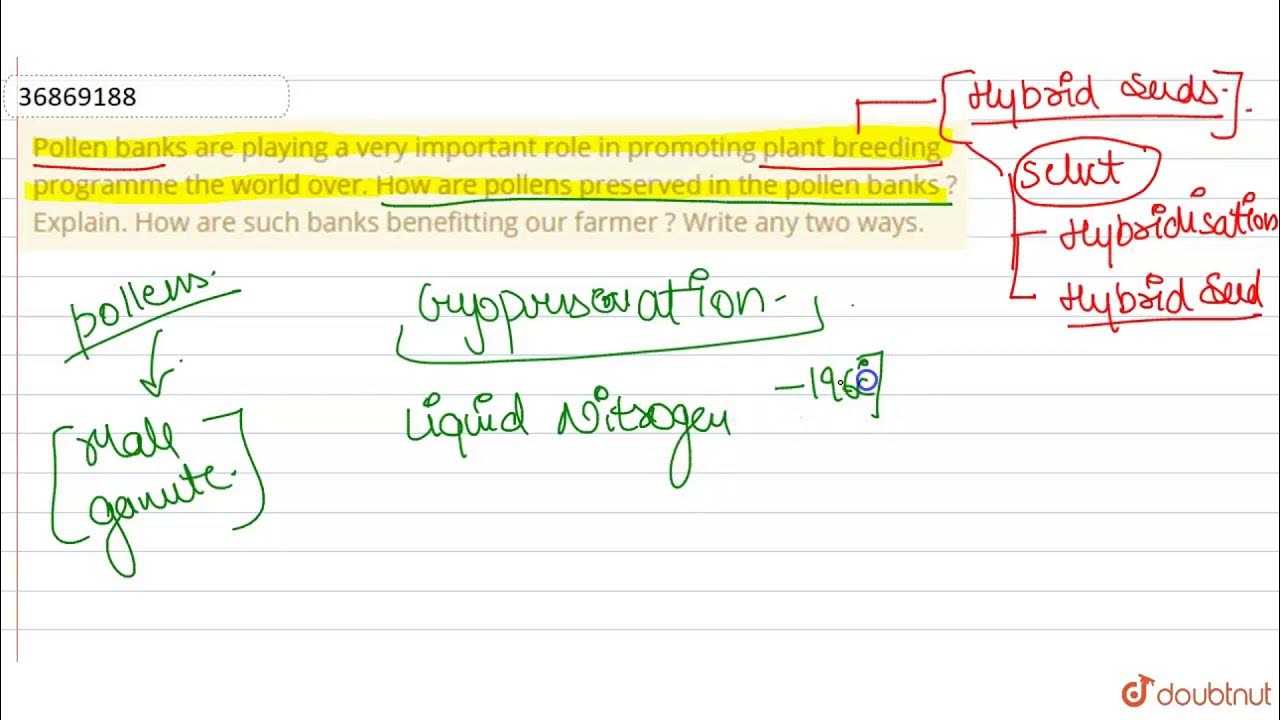 36869188
Pollen banks are playing a very important role in promoting plant breeding
programme the world over. How are pollens preserved in the pollen banks ?
Explain. How are such banks benefitting our farmer ? Write any two ways.
[Hybrid Seeds].
Select
Hybridisation
Hybrid Seed
pollens.
Cryopreservation
Liquid Nitrogen -196°C
[Male
gamete.]
doubtnut